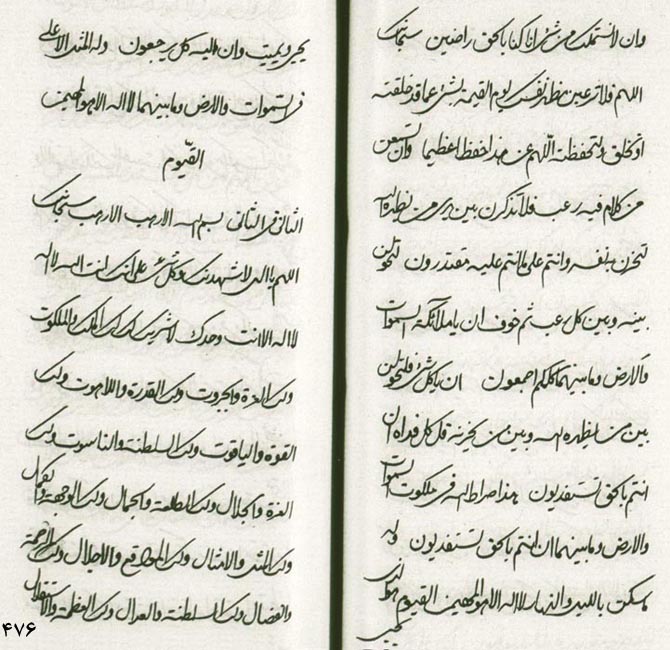 وان لانستملك من شئ اناكنا بالحق راضين سبحانك
اللهم فلاترعين مظهر نفسك يوم القيمة بشئ عما قد خلقته
او تخلق ولتحفظنه اللهم عن هذا حفظا عظيما وان تسمعن
من كلام فيه رعب فلا تذكرن بين يدي من يظهره الله
لتحزن نفسه وانتم على ما انتم عليه مقتدرون لتحولن
بينه وبين كل رعب ثم خوف ان يا ملائكة السموات
والارض وما بينهما كلكم اجمعون ان يا كل شئ فلتحولن
بين من يظهره الله وبين من يحزنه قل كل فداه ان
انتم بالحق تستفديون هذا صراط الله في ملكوت السموات
والارض وما بينهما ان انتم بالحق تستفديون وله
ما سكن بالليل والنهار لا اله الا هو المهيمن القيوم هو الذي
يحيي
يحيي ويميت وان اليه كل يرجعون وله المثل الاعلى
في السموات والارض وما بينهما لا اله الا هو المهيمن
القيّوم
الثاني في الثاني بسم الله الارهب الارهب سبحانك
اللهم يا الهي لاشهدنك وكل شئ على انك انت الله لا اله
لا اله الا انت وحدك لا شريك لك لك الملك والملكوت
ولك العزة والجبروت ولك القدرة واللاهوت ولك
القوة والياقوت ولك السلطنة والناسوت ولك
العزة والجلال ولك الطلعة والجمال ولك الوجهة والكمال
ولك المثل والامثال ولك المواقع والاجلال ولك الرحمة
والفضال ولك السلطنة والعدال ولك العظمة والاستقلال
۴۷۶